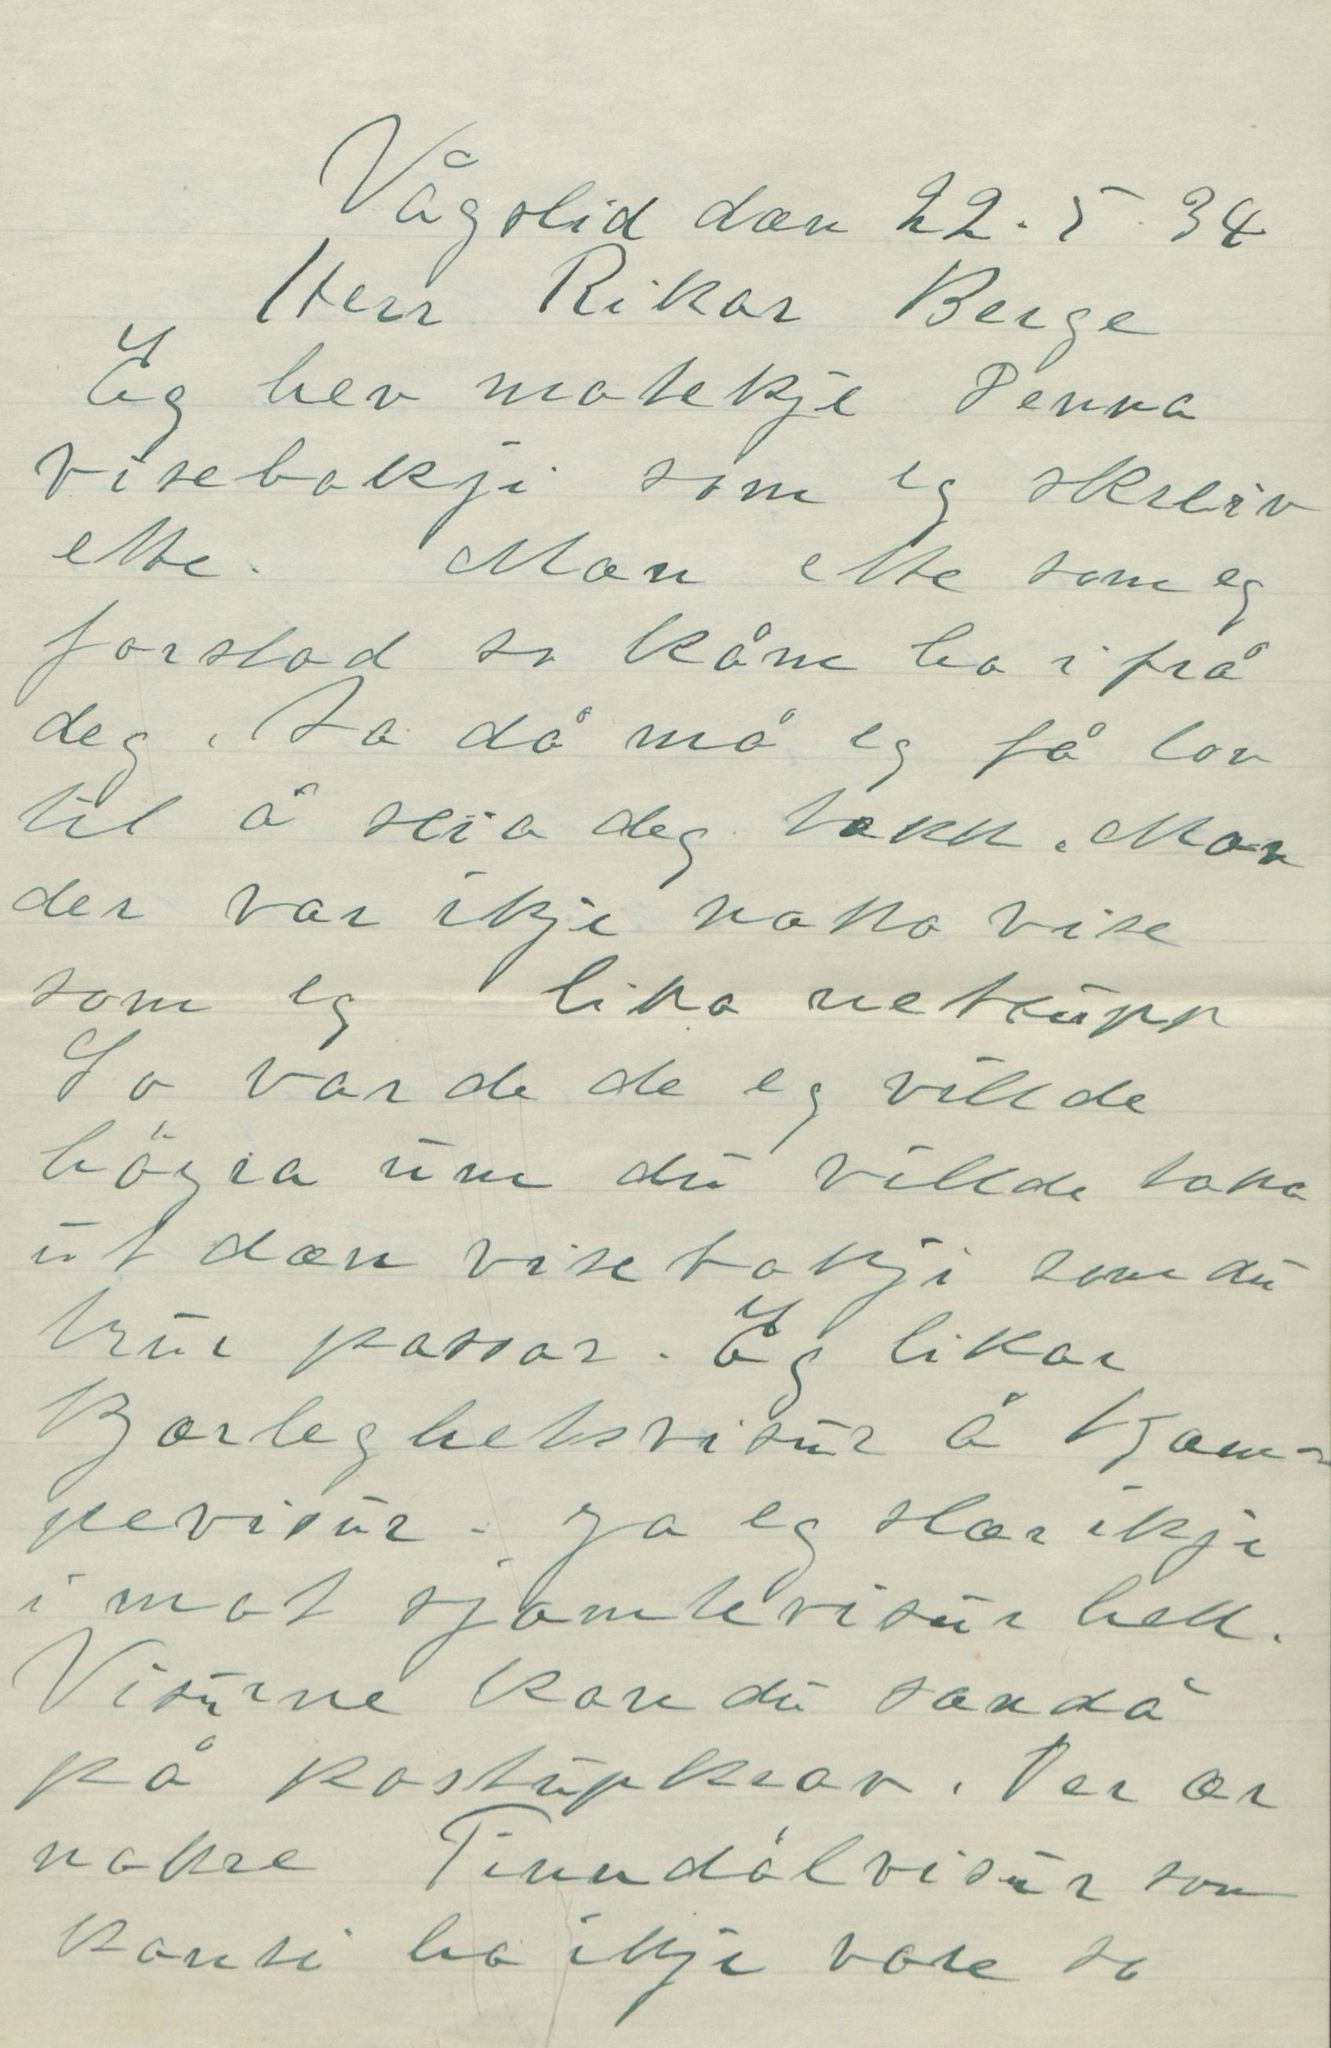 Vågslid dæn 22.5.34
Herr Rikar Berge
Eg hev motekje Denna
visebokji som eg skreiv
ette. Mæn ette som eg
forstod so kåm ho ifrå
deg. So då må eg få lov
til å seia deg takk. Mæn
der var ikje noko vise
som eg lika netupp
So var de de eg villde
högra um du villde taka
ut dæn visebokji som du
trur passar. Eg likar
Kjærleghetsvisur å Kjæm-
pevisur. Ja eg slær ikje
imot sjæmtevisur hell.
Visurne kan du sænda
på postupkrav. Der ær
nokre Tinndölvisur som
kansi ha ikje vore so